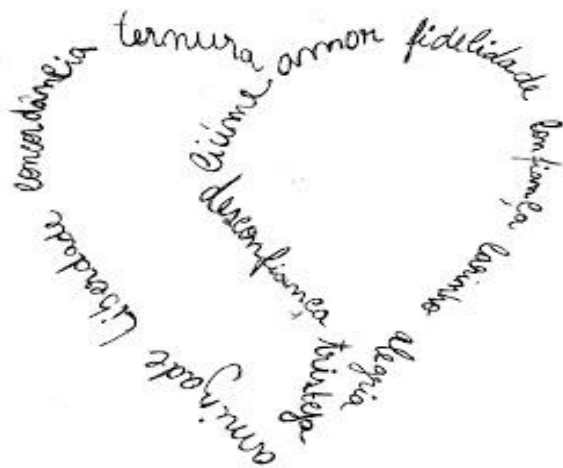 concordância
ternura
amor
fidelidade
confiança
carinho
alegria
ciúme
desconfiança
tristeza
liberdade
amizade